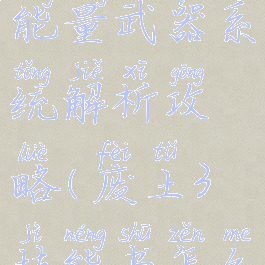 能量武器系
tǒng jiě xī gōng
统解析攻
lüè fèi tǔ
略(废土3
jì néng shū zěn me
技能书怎么